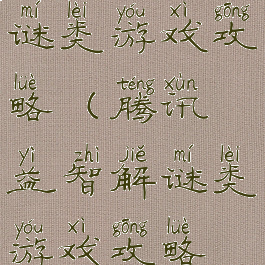 mí lèi yóu xì gōng
谜类游戏攻
lüè téng xùn
略（腾讯
yì zhì jiě mí lèi
益智解谜类
yóu xì gōng lüè
游戏攻略